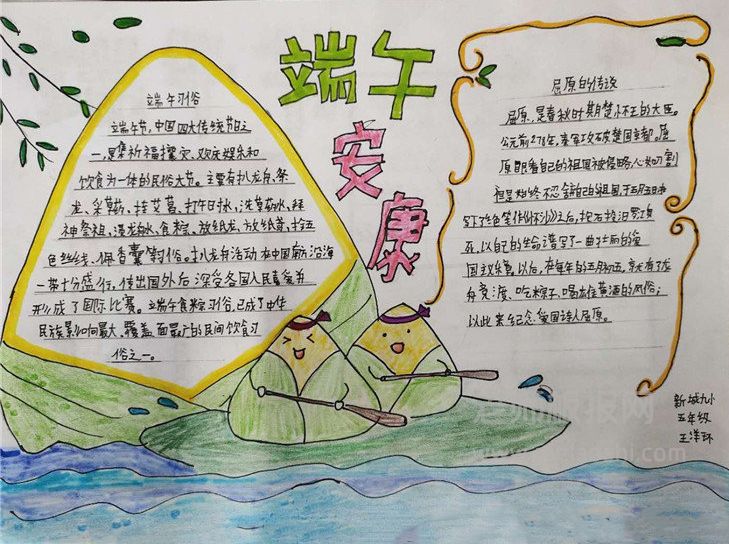 端午
安康
端午习俗
端午节,中国四大传统节日之
一,是集祈福攘灾、欢庆娱乐和
饮食为一体的民俗大节。主要有扒龙舟、祭
龙、采草药、挂艾蒿、打午时水、洗草药水、拜
神祭祖、浸龙舟水、食粽、放纸龙、放纸鸢、拴五
色丝线、佩香囊等习俗。扒龙舟活动在中国南方沿海
一带十分盛行,传出国外后深受各国人民喜爱并
形成了国际比赛。端午食粽习俗,已成了中华
民族影响最大、覆盖面最广的民间饮食习
俗之一。
屈原的传说
屈原,是春秋时期楚怀王的大臣。
公元前278年,秦军攻破楚国京都。屈
原眼看自己的祖国被侵略,心如刀割
但是始终不忍舍自己的祖国,于五月五日
写下了绝笔作《怀沙》之后,抱石投汨罗江身
死,以自己的生命谱写了一曲壮丽的爱
国主义乐章。以后,在每年的五月初五,就有了龙
舟竞渡、吃粽子、喝雄黄酒的风俗;
以此来纪念爱国诗人屈原。
新城九小
五年级
王洋环